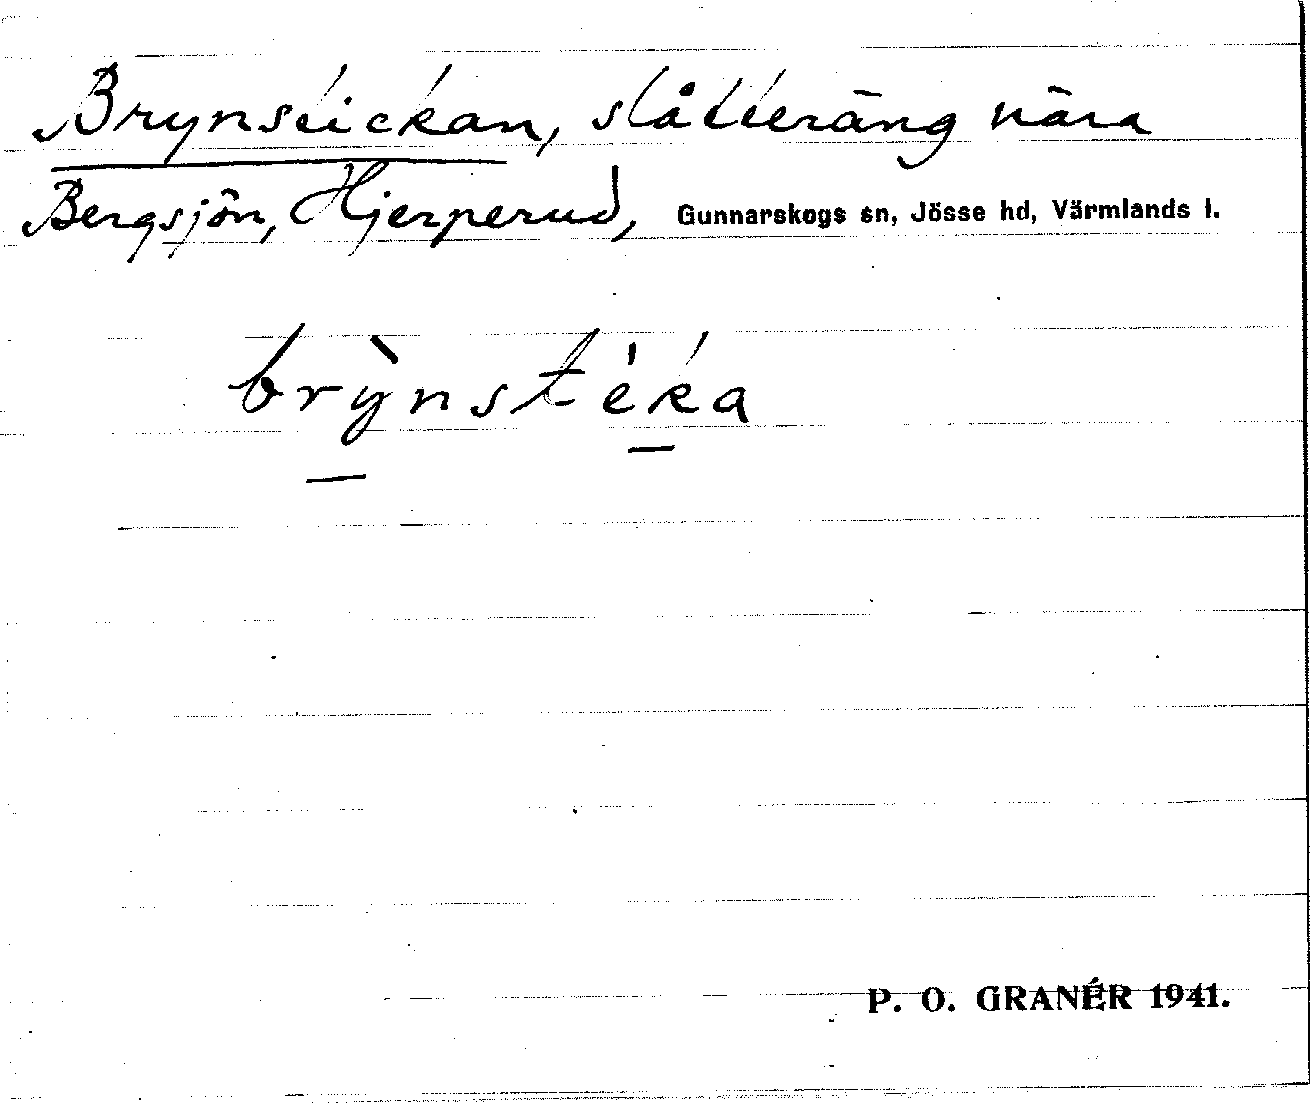 Brynstickan, slåtteräng nära
Bergsjön, Hjerperud, Gunnarskogs sn, Jösse hd, Värmlands l.
brỳnstéka
P. O. GRANÉR 1941.